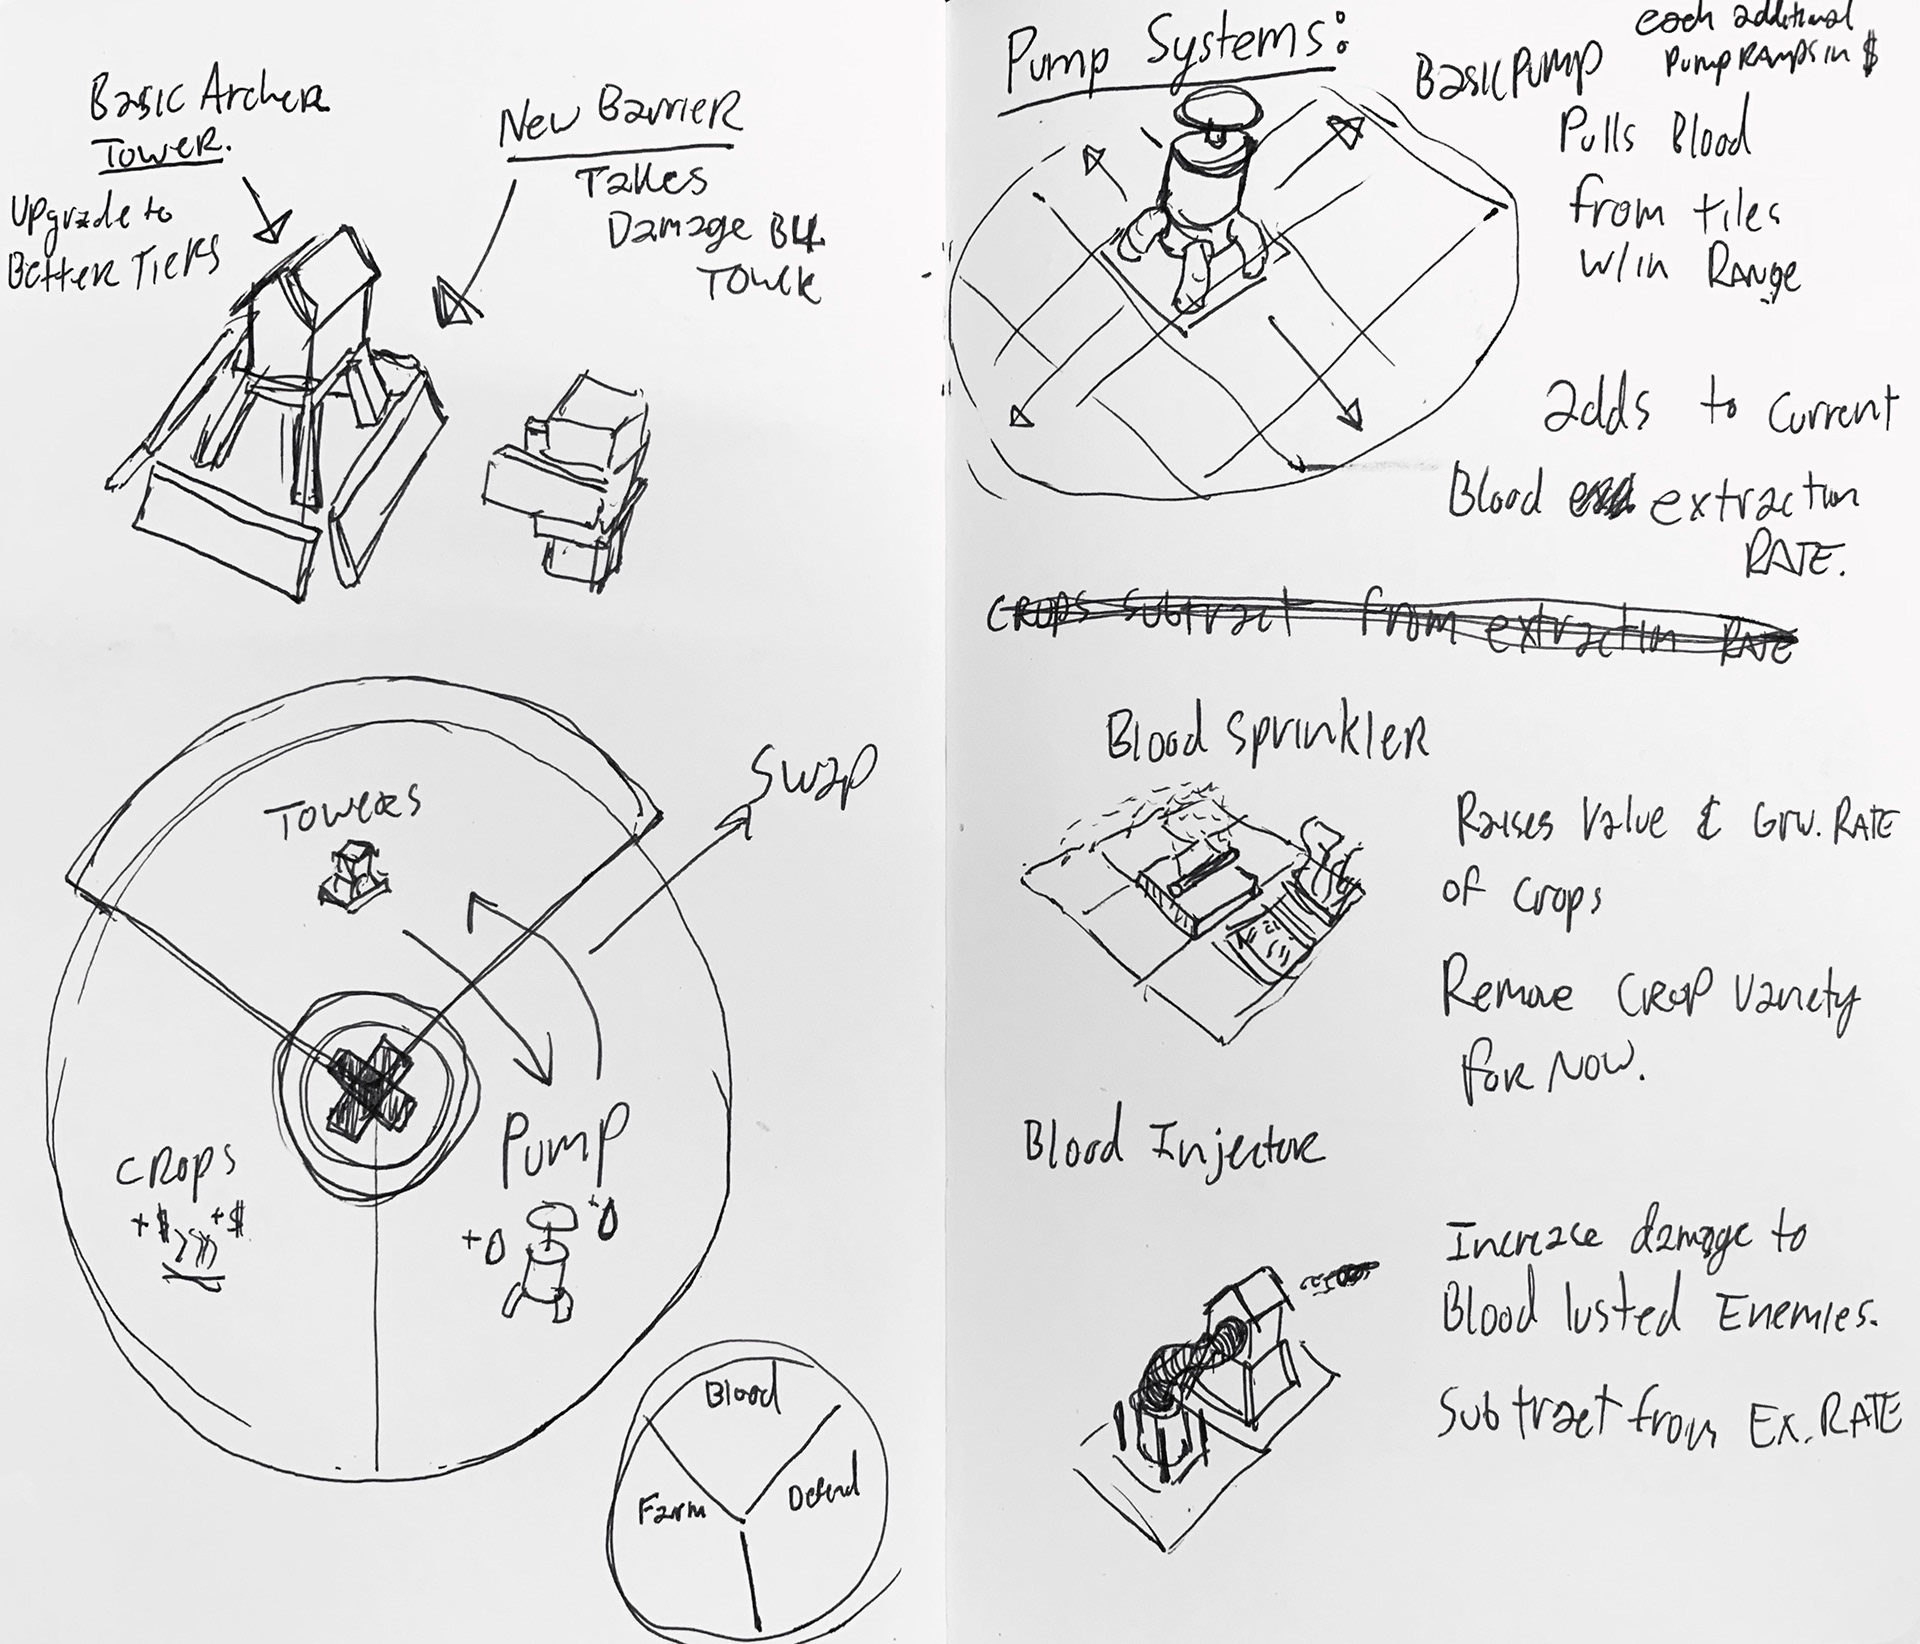 Basic Archer
Tower.
Upgrade to
Better Tiers
New Barrier
Takes
Damage B4
Tower
Swap
Towers
Crops
+$ +$
Pump
+0 +0
Blood
Farm
Defend
Pump Systems:
Basic Pump
each additional
Pump Ramps in $
Pulls Blood
from tiles
w/in Range
adds to current
Blood extraction
Rate.
Crops subtract from extraction Rate
Blood Sprinkler
Raises Value & Grw. Rate
of crops
Remove Crop Variety
for Now.
Blood Injector
Increase damage to
Blood lusted Enemies.
Subtract from Ex. Rate